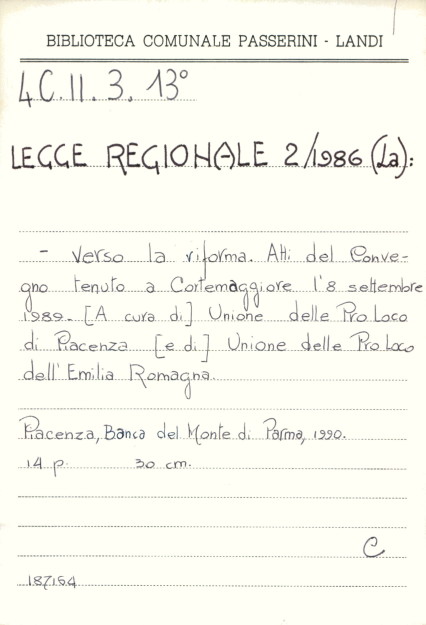 BIBLIOTECA COMUNALE PASSERINI - LANDI
4C.II.3.13°
LEGGE REGIONALE 2/1986 (La):
- Verso la riforma. Atti del Conve-
gno tenuto a Cortemaggiore l'8 settembre
1989. [A cura di] Unione delle Pro Loco
di Piacenza [e di] Unione delle Pro Loco
dell'Emilia Romagna.
Piacenza, Banca del Monte di Parma, 1990.
14 p. 30 cm.
C
187154